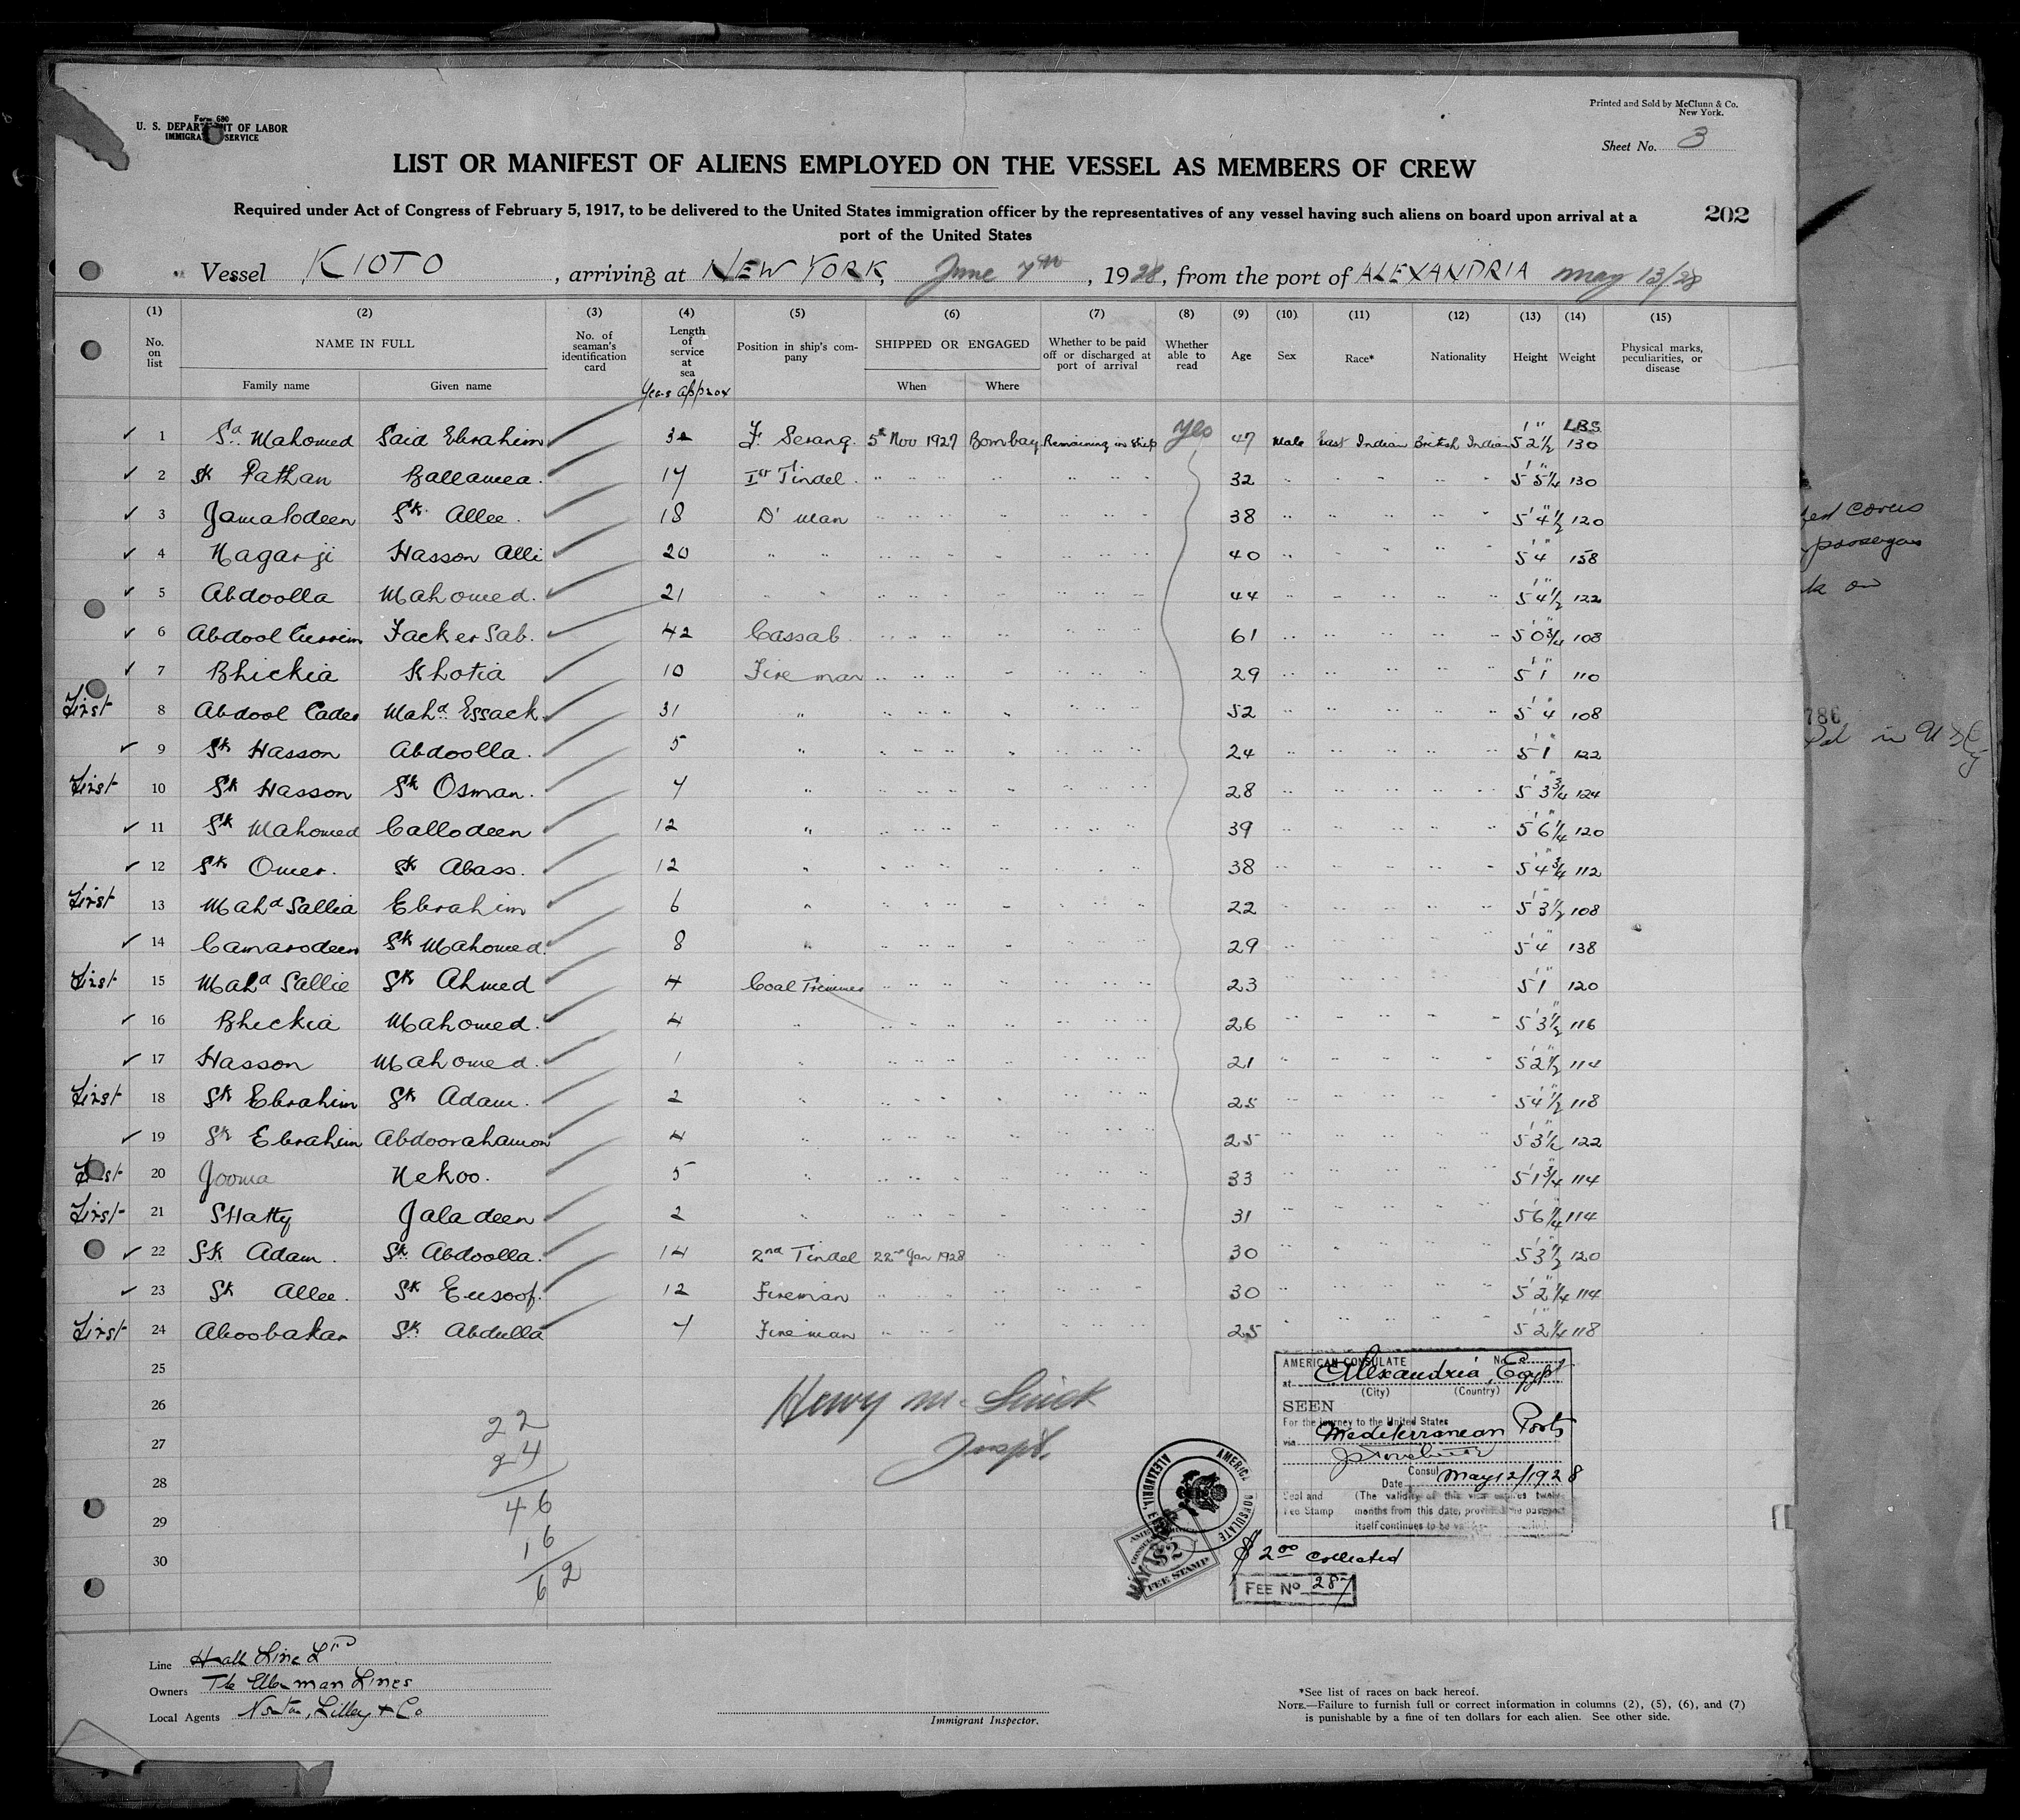 Form 680
U. S. DEPARTMENT OF LABOR
IMMIGRATION SERVICE
Printed and Sold by McClunn & Co.
New York.
Sheet No. 3
LIST OR MANIFEST OF ALIENS EMPLOYED ON THE VESSEL AS MEMBERS OF CREW
Required under Act of Congress of February 5, 1917, to be delivered to the United States immigration officer by the representatives of any vessel having such aliens on board upon arrival at a
port of the United States
202
Vessel KIOTO, arriving at NEW YORK, June 7th, 1928, from the port of ALEXANDRIA May 13/28
(1) (2) (3) (4) (5) (6) (7) (8) (9) (10) (11) (12) (13) (14) (15)
No. on list
NAME IN FULL
Family name Given name
No. of seaman's identification card
Length of service at sea
Years approx
Position in ship's company
SHIPPED OR ENGAGED
When Where
Whether to be paid off or discharged at port of arrival
Whether able to read
Age Sex Race* Nationality Height Weight
Physical marks, peculiarities, or disease
LBS
1 Sd. Mahomed Said Ebrahim F. Serang 5th Nov 1927 Bombay Remaining in Ship yes 47 Male East Indian British Indian 5' 2½" 130
2 Sk Pathan Ballamea 17 1st Tindel 32 5' 5¼" 130
3 Jamalodeen Sk. Allee 18 D' man 38 5' 4½" 120
4 Nagarji Hasson Alli 20 " " 40 5' 4" 158
5 Abdoolla Mahomed. 21 " " 44 5' 4½" 122
6 Abdool Currim Facker Sab. 42 Cassab 61 5' 0¾" 108
7 Bhickia Khotia 10 Fireman 29 5' 1" 110
First 8 Abdool Cader Mahd. Essack 31 " 52 5' 4" 108
9 Sk Hasson Abdoolla. 5 " 24 5' 1" 122
First 10 Sk Hasson Sk Osman. 7 " 28 5' 3¾" 124
11 Sk Mahomed Callodeen 12 " 39 5' 6¼" 120
12 Sk Omer. Sk Abass. 12 " 38 5' 4¾" 112
First 13 Mahd Sallia Ebrahim 6 " 22 5' 3½" 108
14 Camarodeen Sk Mahomed. 8 " 29 5' 4" 138
First 15 Mahd Sallie Sk Ahmed 4 Coal Trimmer 23 5' 1" 120
16 Bhickia Mahomed. 4 " 26 5' 3½" 116
17 Hasson Mahomed. 1 " 21 5' 2½" 114
First 18 Sk Ebrahim Sk Adam. 2 " 25 5' 4½" 118
19 Sk Ebrahim Abdoorahamon 4 " 25 5' 3½" 122
First 20 Jooma Nekoo. 5 " 33 5' 1¾" 114
First 21 SHatty Jaladeen 2 " 31 5' 6¼" 114
22 Sk Adam. Sk. Abdoolla. 14 2nd Tindel 22nd Jan 1928 30 5' 3½" 120
23 Sk Allee. Sk Eusoof. 12 Fireman 30 5' 2¼" 114
First 24 Aboobakar Sk. Abdulla 7 Fireman 25 5' 2¼" 118
25
26
27
28
29
30
22
24
46
16
62
Henry
Insptr.
AMERICAN CONSULATE No.
at Alexandria, Egypt
(City) (Country)
SEEN
For the journey to the United States
via Mediterranean Ports
Consul
Date May 12/1928
Seal and Fee Stamp
(The validity of this visa expires twelve
months from this date, provided the passport
itself continues to be valid
AMERICAN CONSULATE
ALEXANDRIA
$2
FEE STAMP
$2.00 collected
FEE No 287
Line Hall Line Ltd
Owners The Ellerman Lines
Local Agents Norton, Lilley & Co
Immigrant Inspector.
*See list of races on back hereof.
NOTE.—Failure to furnish full or correct information in columns (2), (5), (6), and (7)
is punishable by a fine of ten dollars for each alien. See other side.
786
in U.S.